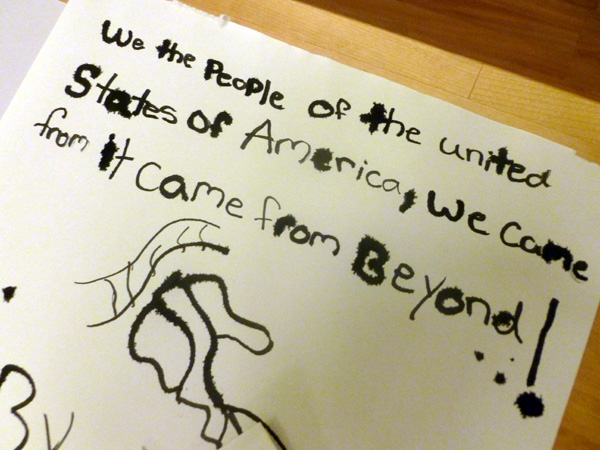 We the People of the united
States of America, We Came
from It Came from Beyond!
By